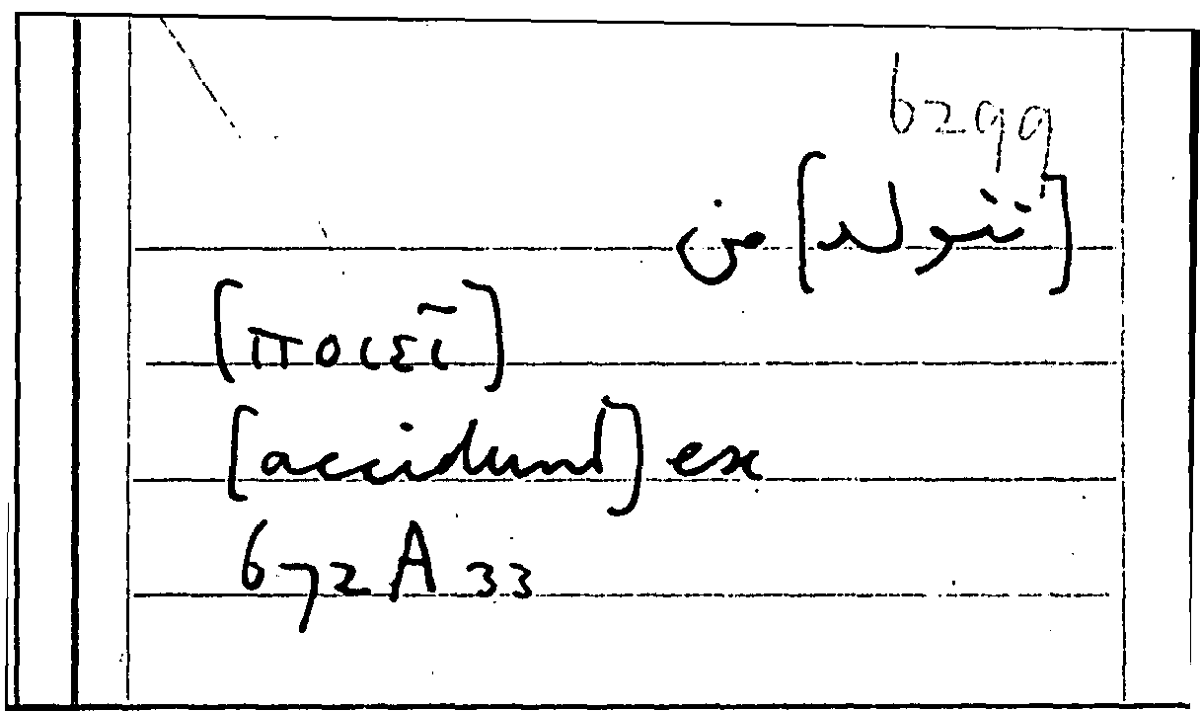 6299
[تتولد] من
[ποιεῖ]
[accidunt] ex
672 A 33